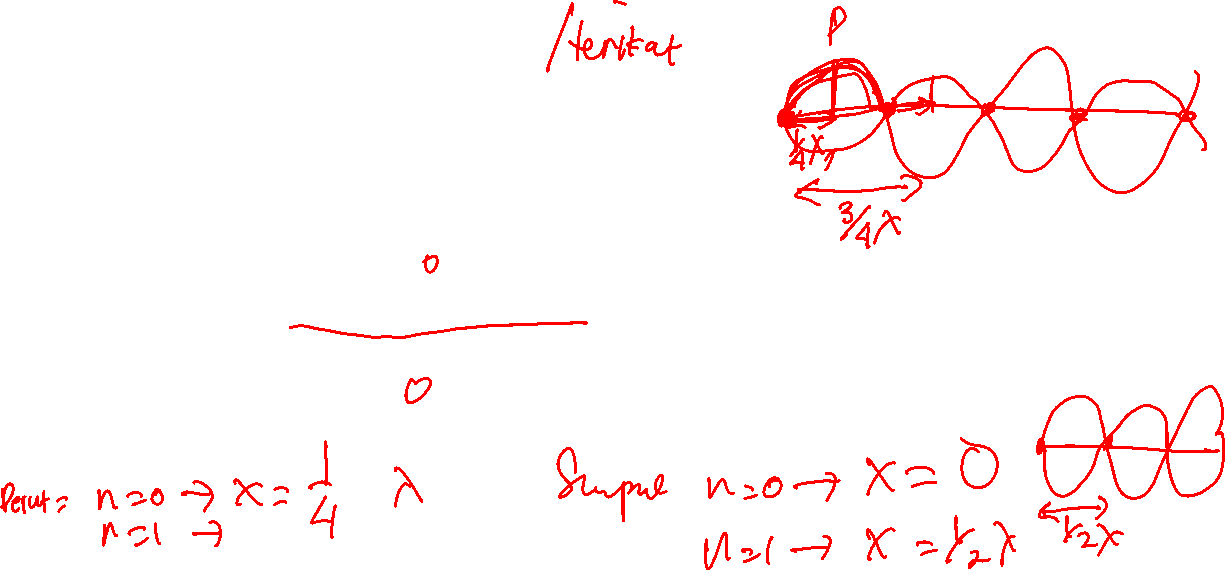 /terikat
P
¼λ
3/4λ
0
0
Perut = n=0 → x = 1/4 λ
n=1 →
Simpul n=0 → x = 0
n=1 → x = 1/2 λ
1/2 λ